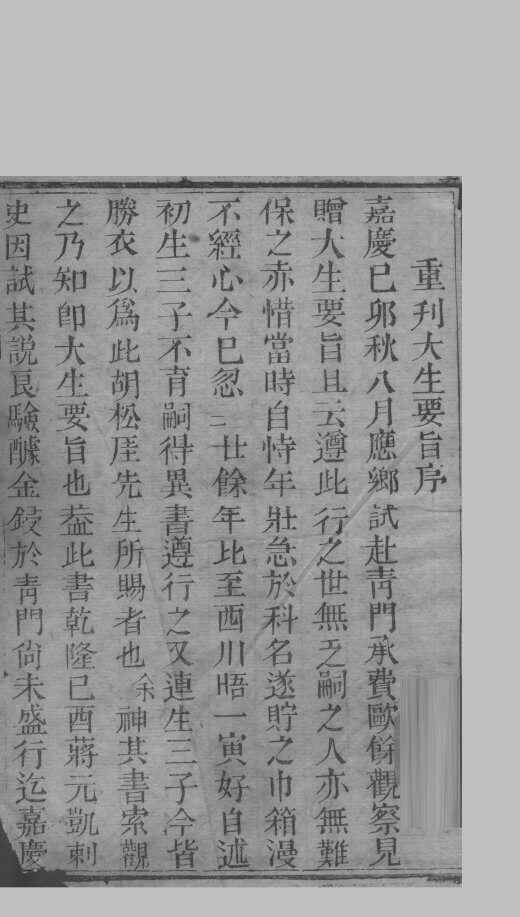 重刊大生要旨序
嘉慶己卯秋八月應鄉試赴青門承費歐餘觀察見
贈大生要旨且云遵此行之世無乏嗣之人亦無難
保之赤惜當時自恃年壯急於科名遂貯之巾箱漫
不經心今已忽二廿餘年比至西川晤一寅好自述
初生三子不育嗣得異書遵行之又連生三子今皆
勝衣以為此胡松厓先生所賜者也余神其書索觀
之乃知卽大生要旨也葢此書乾隆己酉蔣元凱刺
史因試其說良驗醵金鋟於青門尙未盛行迄嘉慶